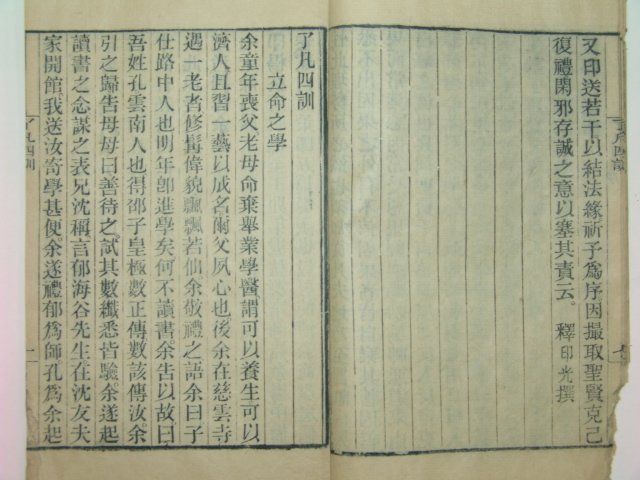 又印送若干以結法緣祈予爲序因撮取聖賢克己
復禮閑邪存誠之意以塞其責云。 釋印光撰
了凡四訓
立命之學
余童年喪父老母命棄舉業學醫謂可以養生可以
濟人且習一藝以成名爾父夙心也後余在慈雲寺
遇一老者修髯偉貌飄飄若仙余敬禮之語余曰子
仕路中人也明年卽進學矣何不讀書。余告以故曰
吾姓孔雲南人也得邵子皇極數正傳數該傳汝。余
引之歸告母母曰善待之。試其數纖悉皆驗。余遂起
讀書之念謀之表兄沈稱。言郁海谷先生。在沈友夫
家開館。我送汝寄學甚便。余遂禮郁爲師孔爲余起
了凡四訓
一
了凡四訓